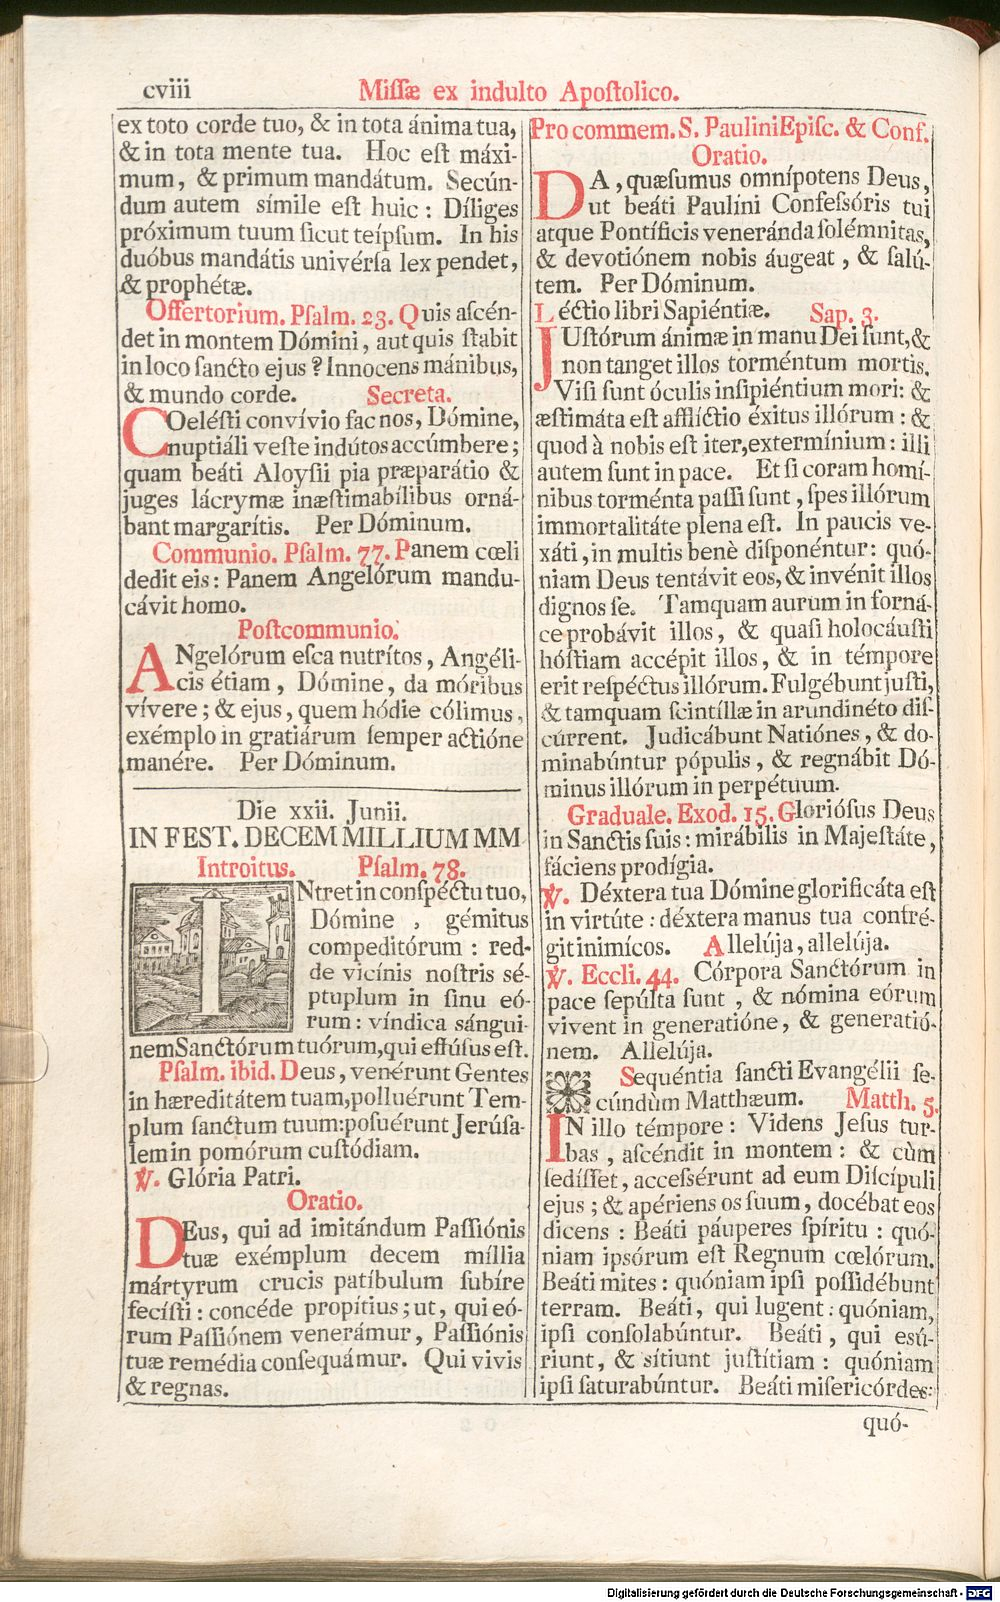 cviii
Miſſæ ex indulto Apoſtolico.
ex toto corde tuo, & in tota ánima tua,
& in tota mente tua. Hoc eſt máxi-
mum, & primum mandátum. Secún-
dum autem símile eſt huic: Díliges
próximum tuum ſicut teípſum. In his
duóbus mandátis univérſa lex pendet,
& prophétæ.
Offertorium. Pſalm. 23. Quis aſcén-
det in montem Dómini, aut quis ſtabit
in loco ſancto ejus? Innocens mánibus,
& mundo corde. Secreta.
COeléſti convívio fac nos, Dómine,
nuptiáli veſte indútos accúmbere;
quam beáti Aloyſii pia præparátio &
juges lácrymæ inæſtimabílibus orná-
bant margarítis. Per Dóminum.
Communio. Pſalm. 77. Panem cœli
dedit eis: Panem Angelórum mandu-
cávit homo.
Poſtcommunio.
ANgelórum eſca nutrítos, Angéli-
cis étiam, Dómine, da móribus
vívere; & ejus, quem hódie cólimus,
exémplo in gratiárum ſemper actióne
manére. Per Dóminum.
Die xxii. Junii.
IN FEST. DECEM MILLIUM MM
Introitus. Pſalm. 78.
INtret in conſpéctu tuo,
Dómine, gémitus
compeditórum: red-
de vicínis noſtris sé-
ptuplum in ſinu eó-
rum: víndica sángui-
nem Sanctórum tuórum, qui effúſus eſt.
Pſalm. ibid. Deus, venérunt Gentes
in hæreditátem tuam, polluérunt Tem-
plum ſanctum tuum: poſuérunt Jerúſa-
lem in pomórum cuſtódiam.
℣. Glória Patri.
Oratio.
DEus, qui ad imitándum Paſſiónis
tuæ exémplum decem míllia
mártyrum crucis patíbulum ſubíre
fecíſti: concéde propítius; ut, qui eó-
rum Paſſiónem venerámur, Paſſiónis
tuæ remédia conſequámur. Qui vivis
& regnas.
Pro commem. S. Paulini Epiſc. & Conf.
Oratio.
DA, quæſumus omnípotens Deus,
ut beáti Paulíni Confeſſóris tui
atque Pontíficis veneránda ſolémnitas,
& devotiónem nobis áugeat, & ſalú-
tem. Per Dóminum.
Léctio libri Sapiéntiæ. Sap. 3.
JUſtórum ánimæ in manu Dei ſunt, &
non tanget illos torméntum mortis.
Viſi ſunt óculis inſipiéntium mori: &
æſtimáta eſt afflíctio éxitus illórum: &
quod à nobis eſt iter, extermínium: illi
autem ſunt in pace. Et ſi coram homí-
nibus torménta paſſi ſunt, ſpes illórum
immortalitáte plena eſt. In paucis ve-
xáti, in multis benè diſponéntur: quó-
niam Deus tentávit eos, & invénit illos
dignos ſe. Tamquam aurum in forná-
ce probávit illos, & quaſi holocáuſti
hóſtiam accépit illos, & in témpore
erit reſpéctus illórum. Fulgébunt juſti,
& tamquam ſcintíllæ in arundinéto diſ-
cúrrent. Judicábunt Natiónes, & do-
minabúntur pópulis, & regnábit Dó-
minus illórum in perpétuum.
Graduale. Exod. 15. Glorióſus Deus
in Sanctis ſuis: mirábilis in Majeſtáte,
fáciens prodígia.
℣. Déxtera tua Dómine glorificáta eſt
in virtúte: déxtera manus tua confré-
git inimícos. Allelúja, allelúja.
℣. Eccli. 44. Córpora Sanctórum in
pace ſepúlta ſunt, & nómina eórum
vivent in generatióne, & generatió-
nem. Allelúja.
Sequéntia ſancti Evangélii ſe-
cúndùm Matthæum. Matth. 5.
IN illo témpore: Videns Jeſus tur-
bas, aſcéndit in montem: & cùm
ſediſſet, acceſſérunt ad eum Diſcípuli
ejus; & apériens os ſuum, docébat eos
dicens: Beáti páuperes ſpíritu: quó-
niam ipſórum eſt Regnum cœlórum.
Beáti mites: quóniam ipſi poſſidébunt
terram. Beáti, qui lugent: quóniam,
ipſi conſolabúntur. Beáti, qui eſú-
riunt, & sítiunt juſtítiam: quóniam
ipſi ſaturabúntur. Beáti miſericórdes:
quó-
Digitalisierung gefördert durch die Deutsche Forschungsgemeinschaft - DFG